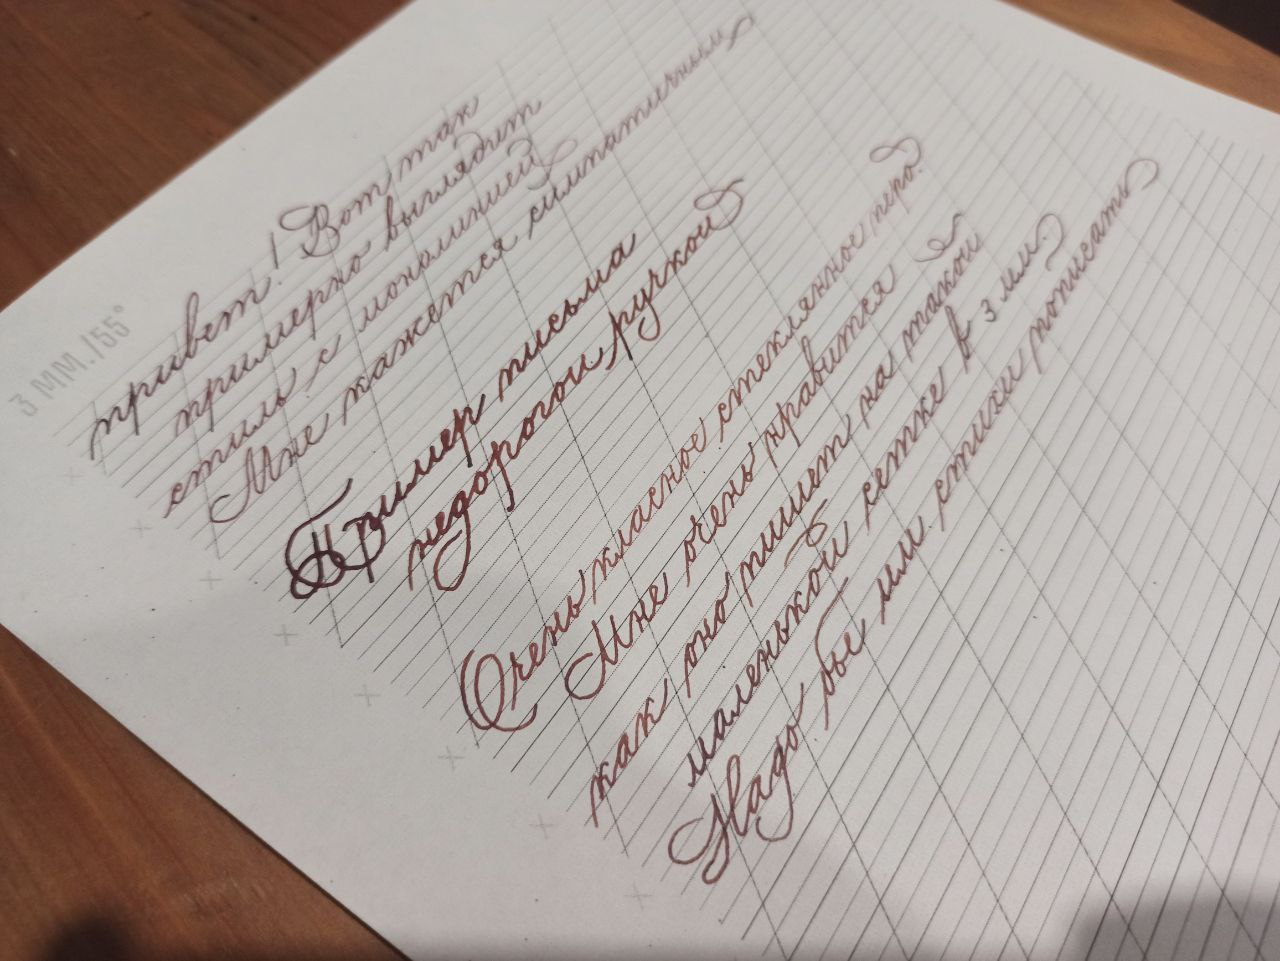 3 ММ./55°
привет! Вот так
примерно выглядит
стиль с монолинией
Мне кажется симпатичным
Пример письма
недорогой ручкой
Очень классное стеклянное перо.
Мне очень нравится
как оно пишет на такой
маленькой сетке в 3 мм.
Надо бы им стихи пописать